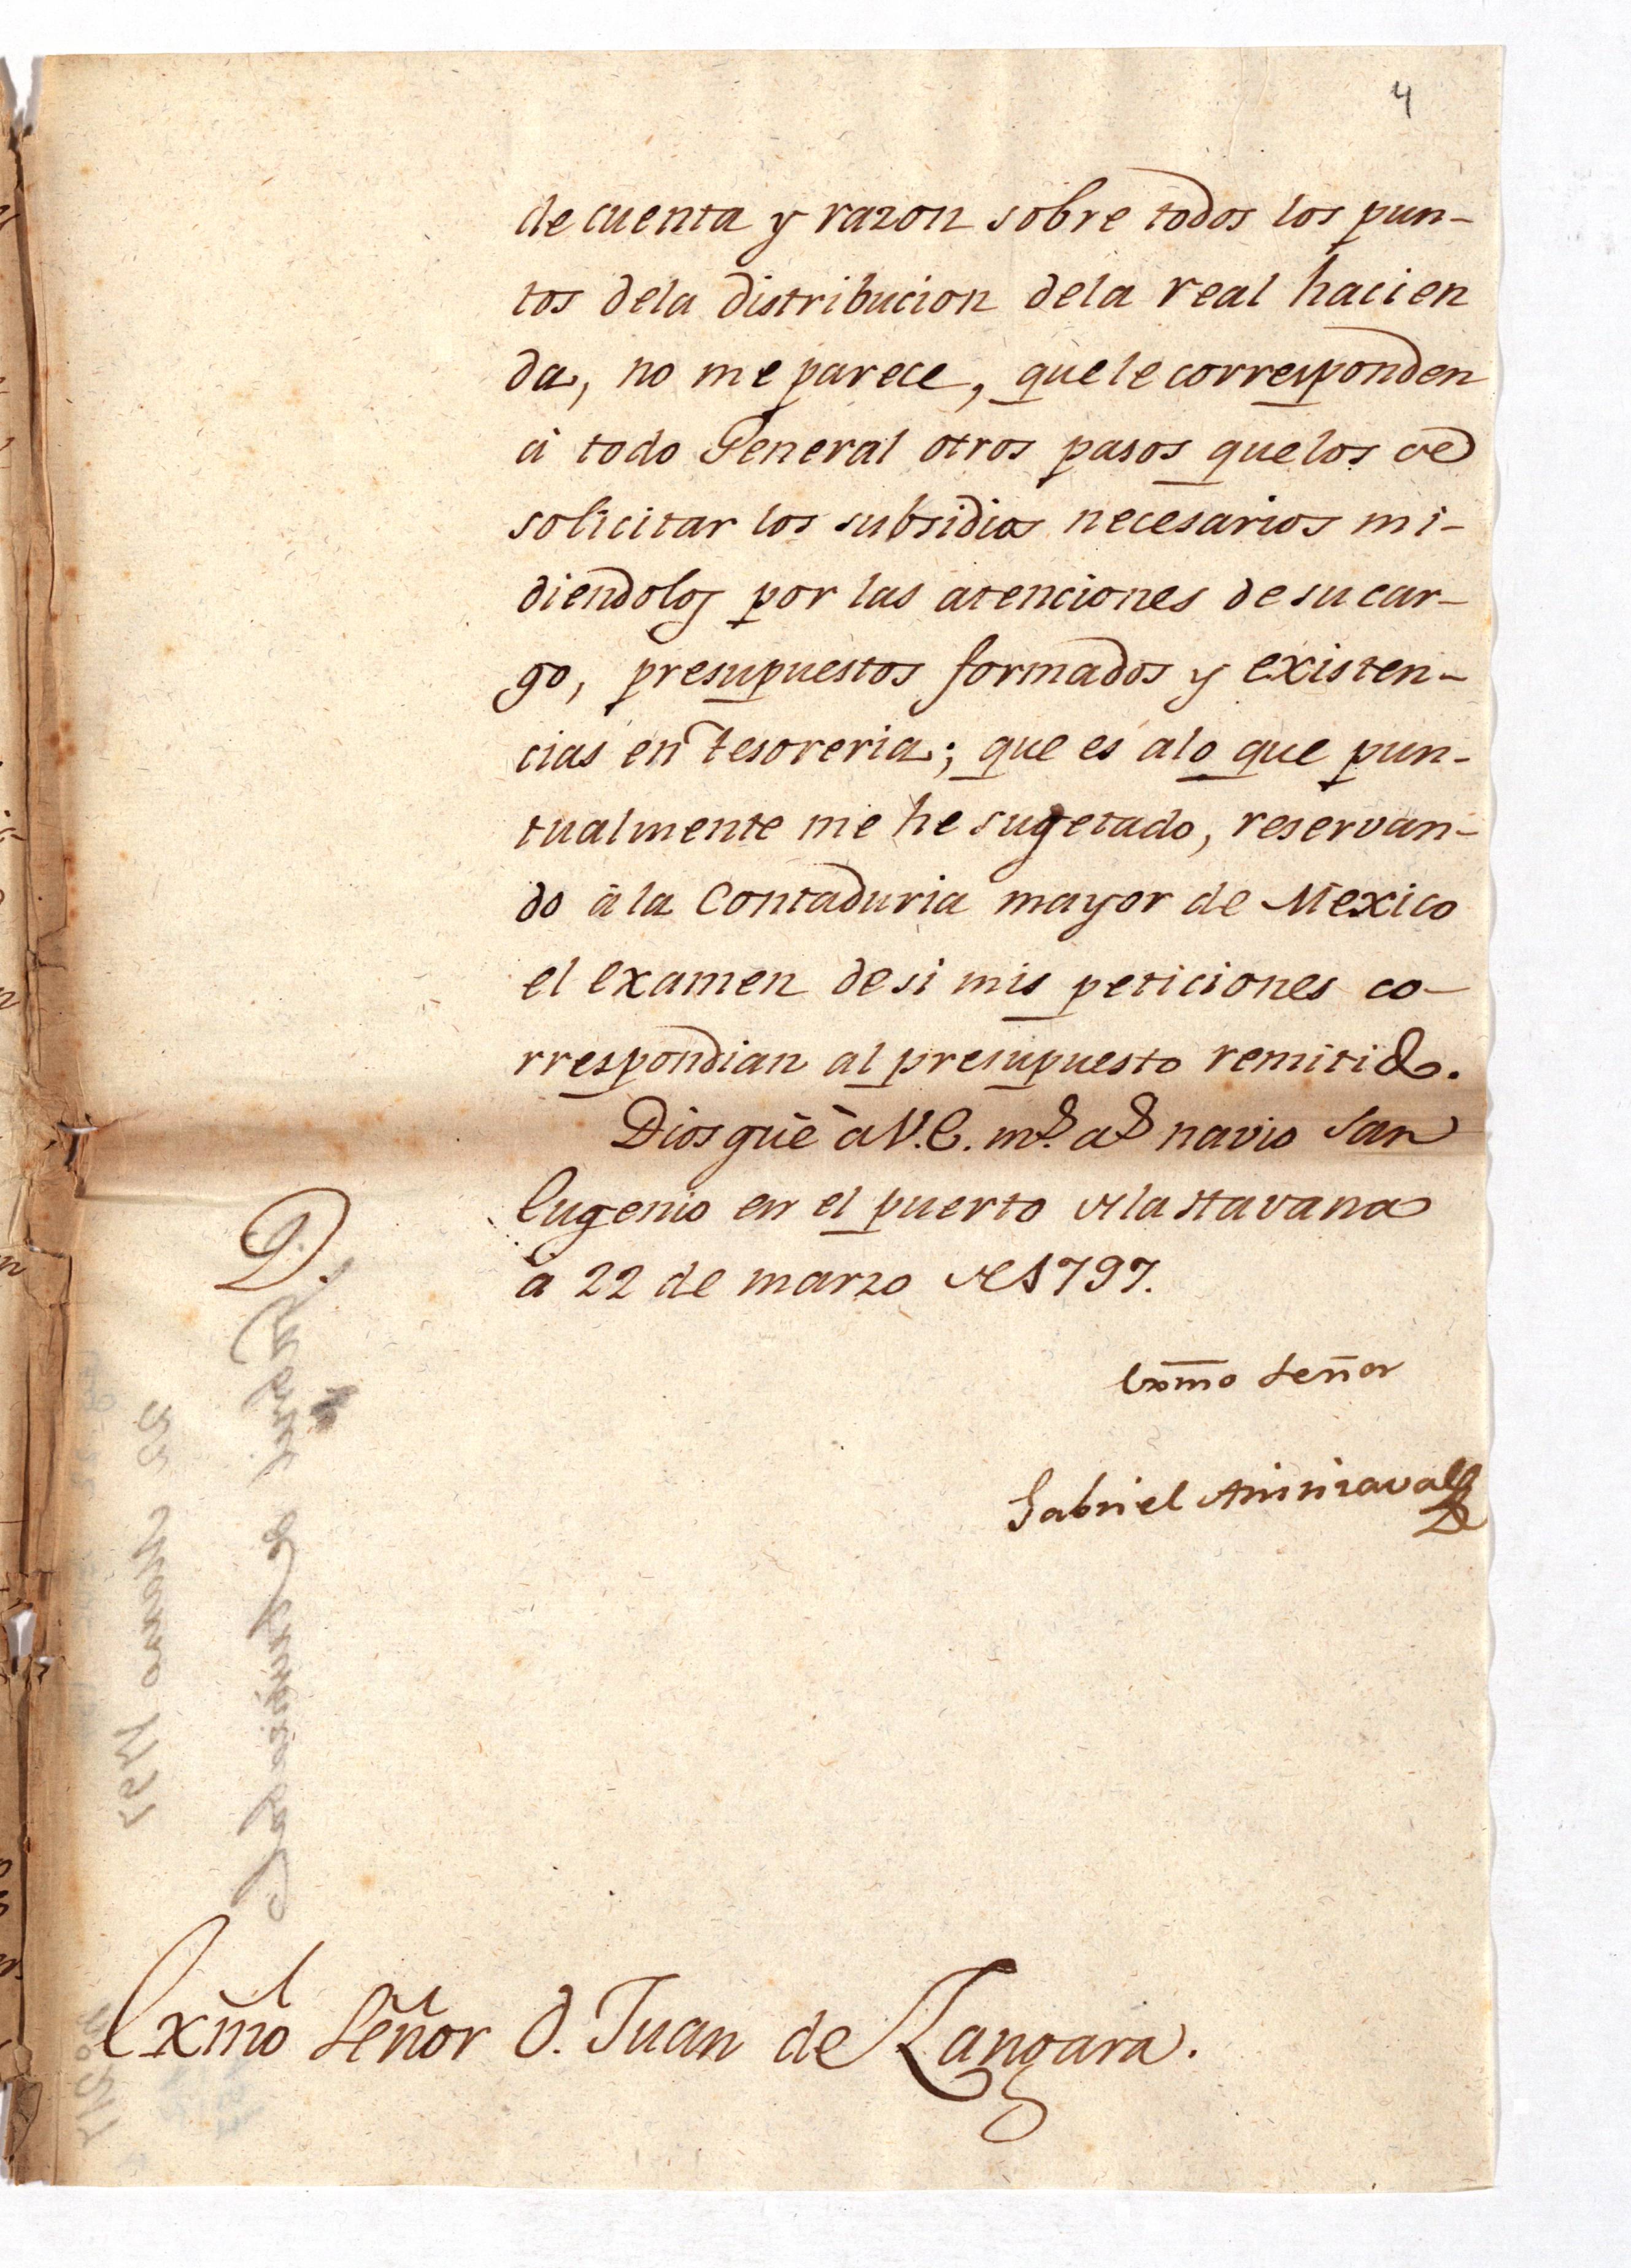 4
de cuenta y razon sobre todos los pun-
tos dela distribucion dela real hacien
da, no me parece, quele corresponden
à todo General otros pasos quelos de
solicitar los subsidios necesarios mi-
diendolos por las atenciones de su car-
go, presupuestos formados y existen-
cias en tesoreria; que es alo que pun-
tualmente me he sugetado, reservan-
do à la Contaduria mayor de Mexico
el examen desi mis peticiones co-
rrespondian al presupuesto remitido.
Dios gue à V.E. ms. as navio San
Eugenio en el puerto de la Havana
à 22 de marzo de 1797.
D.
Exmo Señor
Gabriel Aristizaval
Exmo Señor D. Juan de Langara.